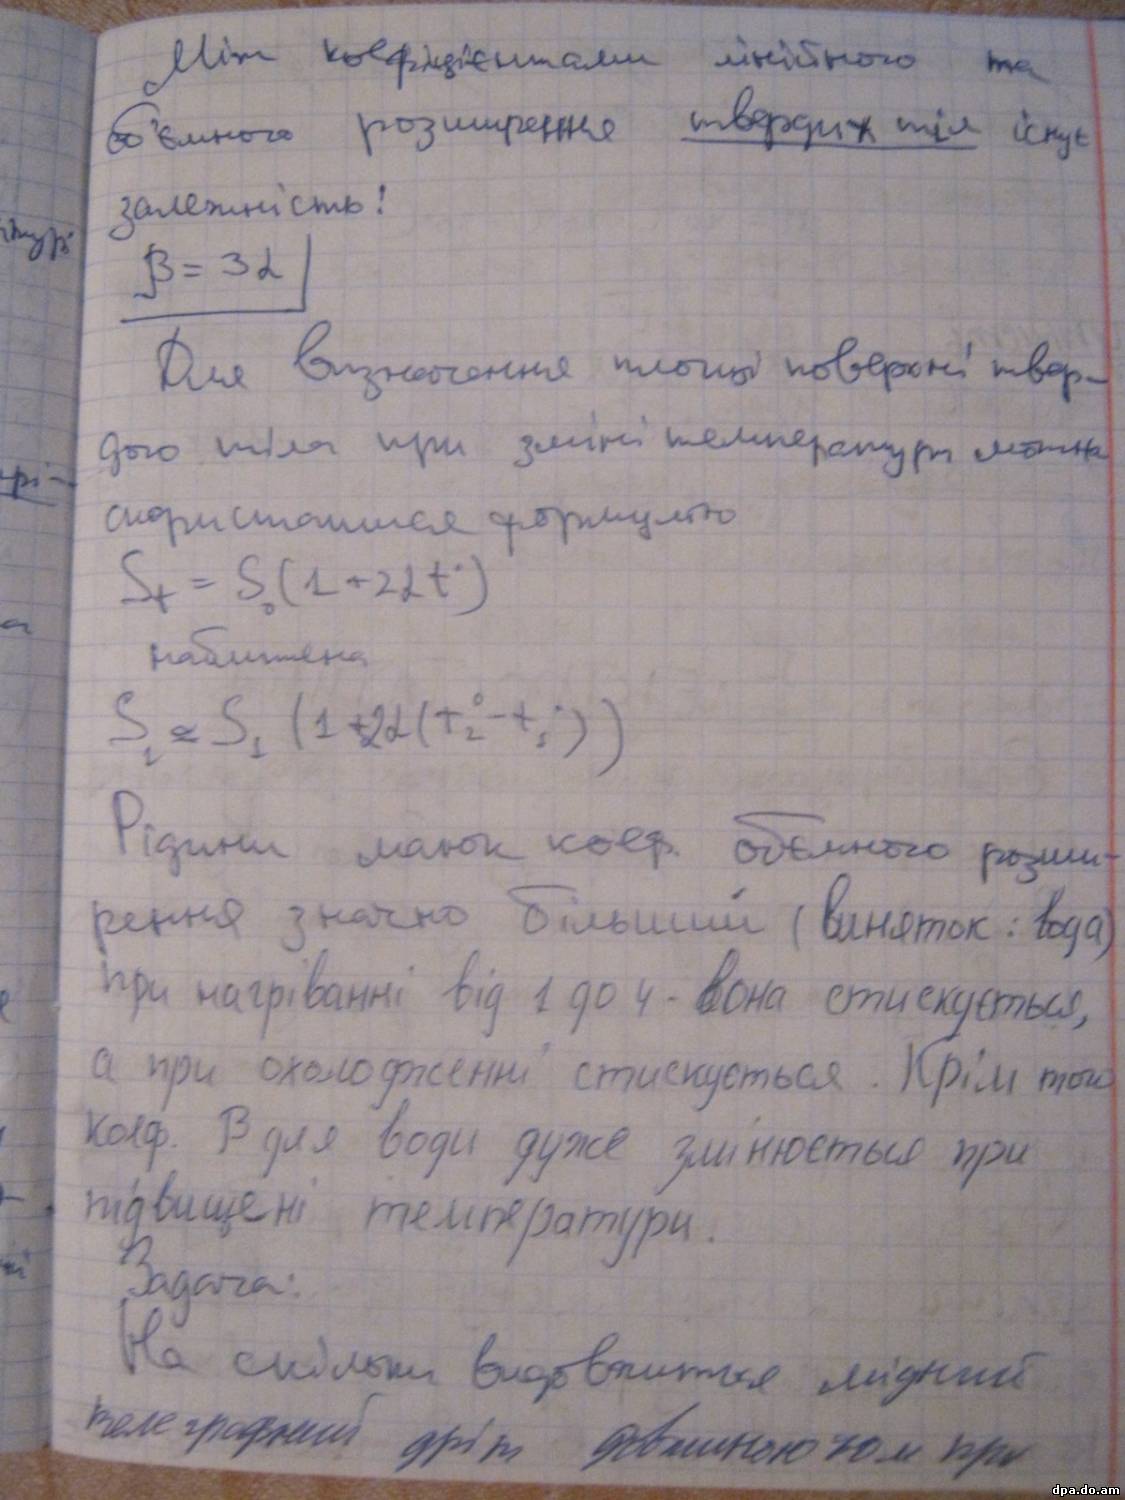 Між коефіцієнтами лінійного та
об'ємного розширення твердих тіл існує
залежність!
β = 3α
Для визначення площі поверхні твер-
дого тіла при зміні температури можна
скористатися формулою
Sₜ = S₀(1+2αt°)
наближена
S₂ ≈ S₁ (1+2α(t₂°-t₁°))
Рідини мають коеф. об'ємного розши-
рення значно більший (виняток: вода)
при нагріванні від 1 до 4 - вона стискується,
а при охолодженні стискується. Крім того
коеф. β для води дуже змінюється при
підвищені температури.
Задача:
На скільки видовжиться мідний
телеграфний дріт довжиною при
dpa.do.am